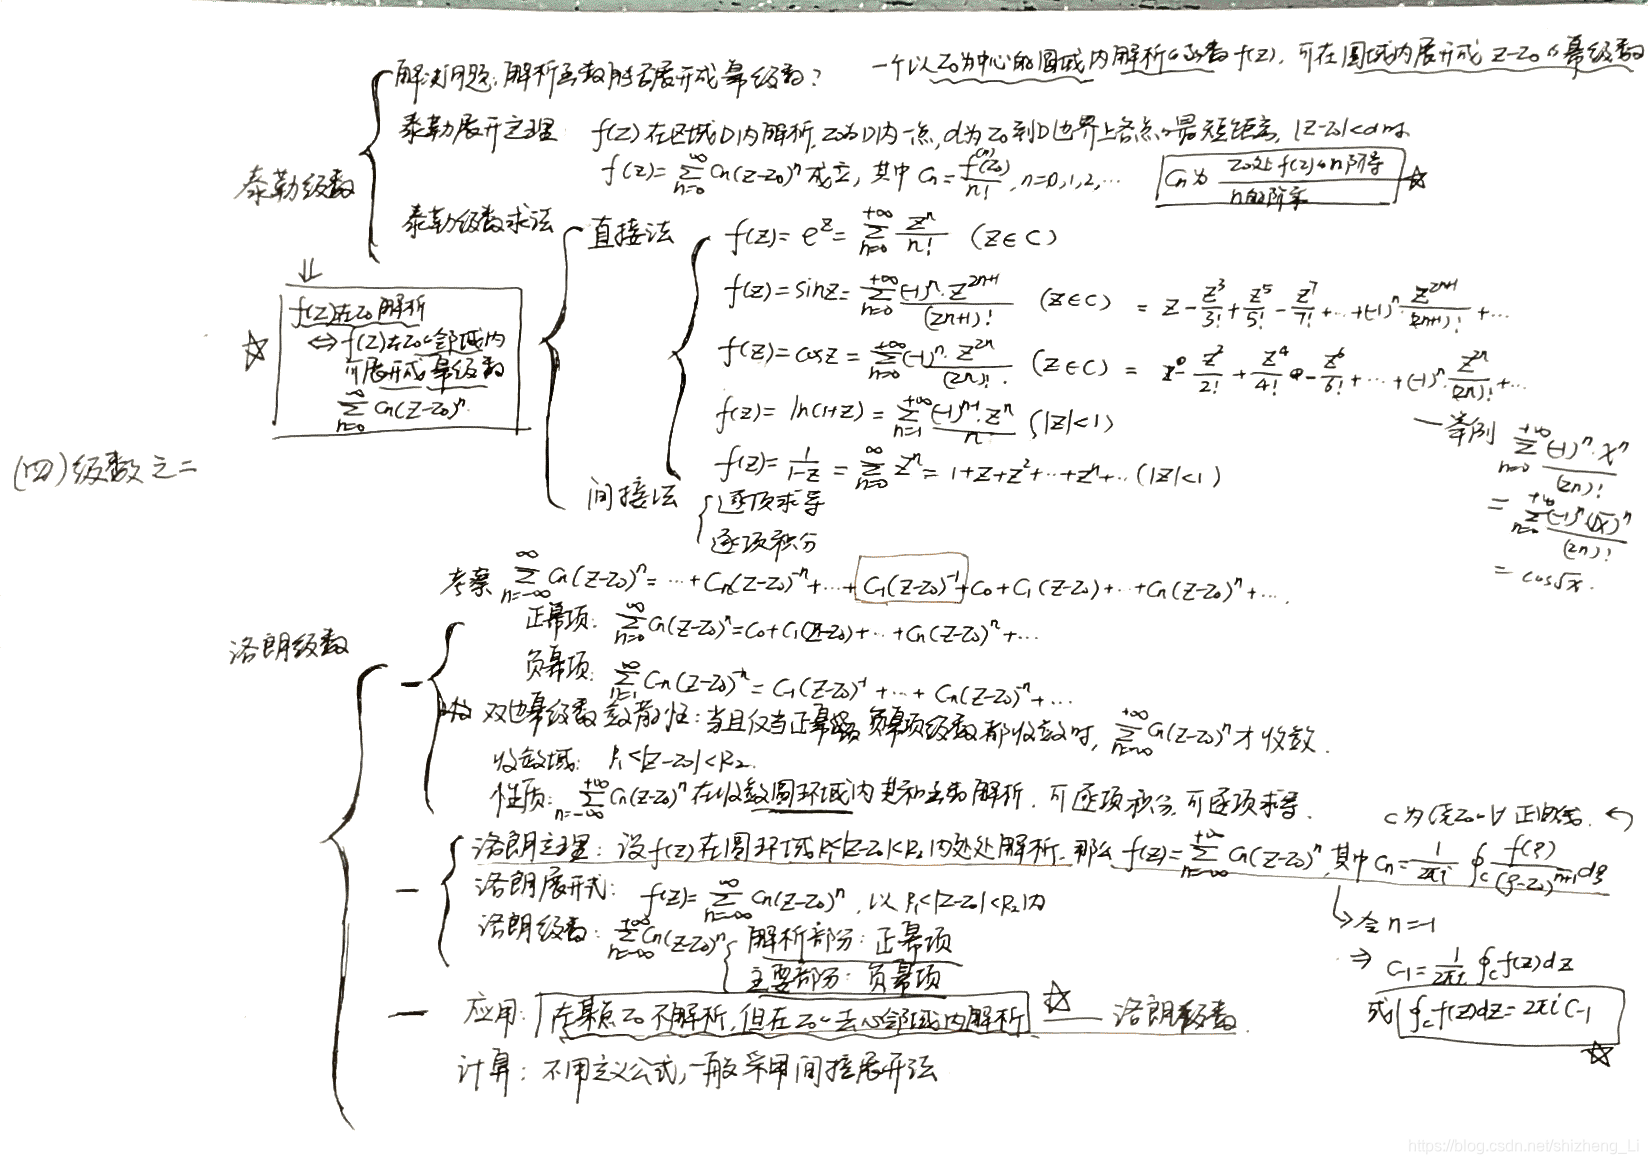 一个以z₀为中心的圆域内解析的函数f(z),可在圆域内展开成z-z₀的幂级数
解决问题:解析函数能否展开成幂级数?
泰勒展开定理 f(z)在区域D内解析,z₀为D内一点,d为z₀到D边界上各点的最短距离,|z-z₀|<d时,
f(z)=∑_{n=0}^{∞} Cn(z-z₀)^n 成立,其中Cn=f^{(n)}(z₀)/n!,n=0,1,2,…
Cn为 z₀处f(z)的n阶导/n的阶乘 ☆
泰勒级数
泰勒级数求法
直接法
f(z)=e^z=∑_{n=0}^{+∞} z^n/n! (z∈C)
f(z)=sinz=∑_{n=0}^{+∞} (-1)^n·z^{2n+1}/(2n+1)! (z∈C) = z-z^3/3!+z^5/5!-z^7/7!+…+(-1)^n z^{2n+1}/(2n+1)!+…
f(z)=cosz=∑_{n=0}^{+∞} (-1)^n·z^{2n}/(2n)! (z∈C) = z^0-z^2/2!+z^4/4!-z^6/6!+…+(-1)^n·z^{2n}/(2n)!+…
f(z)=ln(1+z)=∑_{n=1}^{+∞} (-1)^{n-1}·z^n/n (|z|<1)
f(z)=1/(1-z)=∑_{n=0}^{∞} z^n=1+z+z^2+…+z^n+…(|z|<1)
一举例 ∑_{n=0}^{+∞} (-1)^n·x^n/(2n)!
=∑_{n=0}^{+∞} (-1)^n(√x)^n/(2n)!
=cos√x.
⇓
☆
f(z)在z₀解析
⇔f(z)在z₀的邻域内
可展开成幂级数
∑_{n=0}^{∞} Cn(z-z₀)^n
间接法
逐项求导
逐项积分
(四)级数之二
洛朗级数
考察 ∑_{n=-∞}^{∞} Cn(z-z₀)^n=…+C_n(z-z₀)^{-n}+…+C₁(z-z₀)^{-1}+C₀+C₁(z-z₀)+…+Cn(z-z₀)^n+….
正幂项: ∑_{n=0}^{∞} Cn(z-z₀)^n=C₀+C₁(z-z₀)+…+Cn(z-z₀)^n+…
负幂项: ∑_{n=1}^{∞} Cn(z-z₀)^{-n}=C₁(z-z₀)^{-1}+…+Cn(z-z₀)^{-n}+…
双边幂级数敛散性:当且仅当正幂项,负幂项级数都收敛时,∑_{n=-∞}^{+∞} Cn(z-z₀)^n才收敛.
收敛域: R₁<|z-z₀|<R₂.
性质: ∑_{n=-∞}^{+∞} Cn(z-z₀)^n在收敛圆环域内其和函数解析,可逐项积分,可逐项求导.
C为绕z₀的正向
洛朗定理:设f(z)在圆环域R₁<|z-z₀|<R₂内处处解析,那么f(z)=∑_{n=-∞}^{+∞} Cn(z-z₀)^n,其中Cn=1/2πi ∮_C f(ζ)/(ζ-z₀)^{n+1} dζ
洛朗展开式: f(z)=∑_{n=-∞}^{∞} Cn(z-z₀)^n,以R₁<|z-z₀|<R₂内
洛朗级数: ∑_{n=-∞}^{+∞} Cn(z-z₀)^n
解析部分:正幂项
主要部分:负幂项
↳令n=-1
⇒ C₋₁=1/2πi ∮_C f(z)dz
或∮_C f(z)dz=2πi C₋₁ ☆
应用: 在某点z₀不解析,但在z₀的去心邻域内解析 ☆ —— 洛朗级数.
计算: 不用定义公式,一般采用间接展开法
https://blog.csdn.net/shizheng_Li